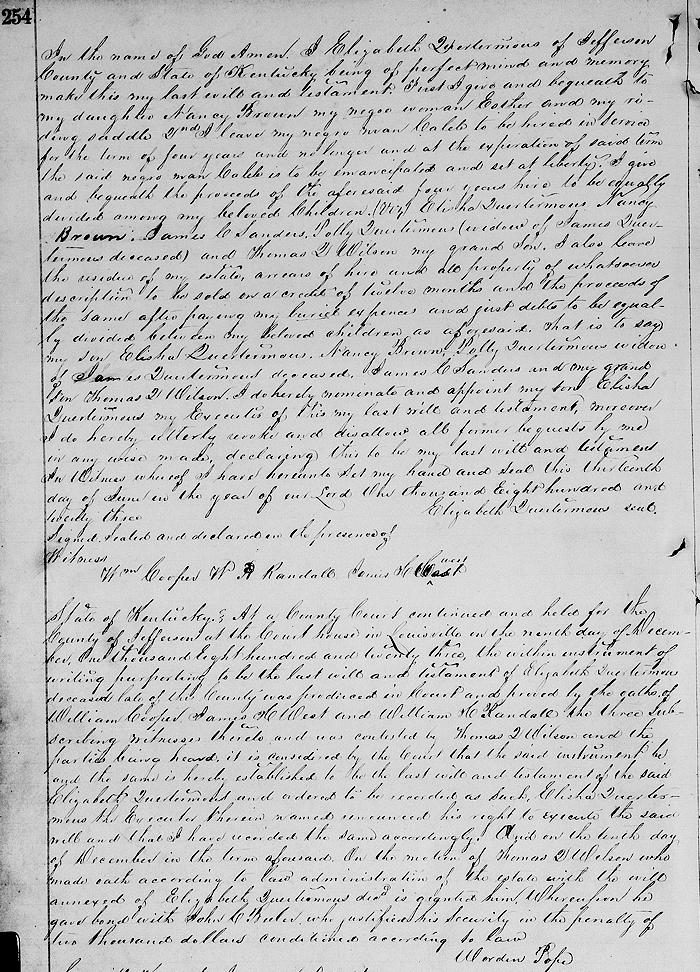 254
In the name of God Amen. I Elizabeth Quertermous of Jefferson
County and State of Kentucky being of perfect mind and memory,
make this my last will and testament. First I give and bequeath to
my daughter Nancy Brown my negro woman Esther and my ri-
ding saddle 2nd I leave my negro man Caleb to be hired in service
for the term of four years and no longer and at the experation of said term
the said negro man Caleb is to be emancipated and set at liberty. I give
and bequeath the proceeds of the aforesaid four years hire to be equally
divided among my beloved Children. (Viz) Elisha Quertermous Nancy
Brown. James C Sanders. Polly Quertermous (widow of James Quer-
termous deceased) and Thomas D Wilson my grand Son. I also leave
the residue of my estate, arrears of hire and all property of whatsoever
description to be sold on a credit of twelve months and the proceeds of
the same after paying my burial expences and just debts to be equal-
ly divided between my beloved children as aforesaid. That is to say
my son Elisha Quertermous. Nancy Brown. Polly Quertermous widow
of James Quertermous deceased. James C Sanders and my grand
son Thomas D Wilson. I do hereby nominate and appoint my son Elisha
Quertermous my Executor of this my last will and testament, moreover
I do hereby utterly revoke and disallow all former bequests by me
in any wise made, declaring this to be my last will and testament
In Witness whereof I have hereunto set my hand and seal this thirteenth
day of June in the year of our Lord One thousand Eight hundred and
twenty three
Elizabeth Quertermous seal.
Signed, sealed and declared in the presence of
Witness
Wm Cooper W H Randall James H West
State of Kentucky. At a County Court continued and held for the
County of Jefferson at the Court house in Louisville on the ninth day of Decem-
ber, One thousand Eight hundred and twenty three, the within instrument of
writing purporting to be the last will and testament of Elizabeth Quertermous
deceased late of the County was produced in Court and proved by the oaths of
William Cooper, James H West and William H Randall the three sub-
scribing witnesses thereto and was contested by Thomas D Wilson and the
parties being heard, it is considered by the Court that the said instrument be
and the same is hereby established to be the last will and testament of the said
Elizabeth Quertermous and ordered to be recorded as such, Elisha Querter-
mous the Executor therein named renounced his right to execute the said
will and that I have recorded the same accordingly. And on the tenth day
of December in the term afousaid. On the motion of Thomas D Wilson who
made oath according to law administration of the estate with the will
annexed of Elizabeth Quertiomous decd is granted him, Whereupon he
gave bond with John C Buler, who justified his security in the penalty of
two thousand dollars conditioned according to law
Worden Pope